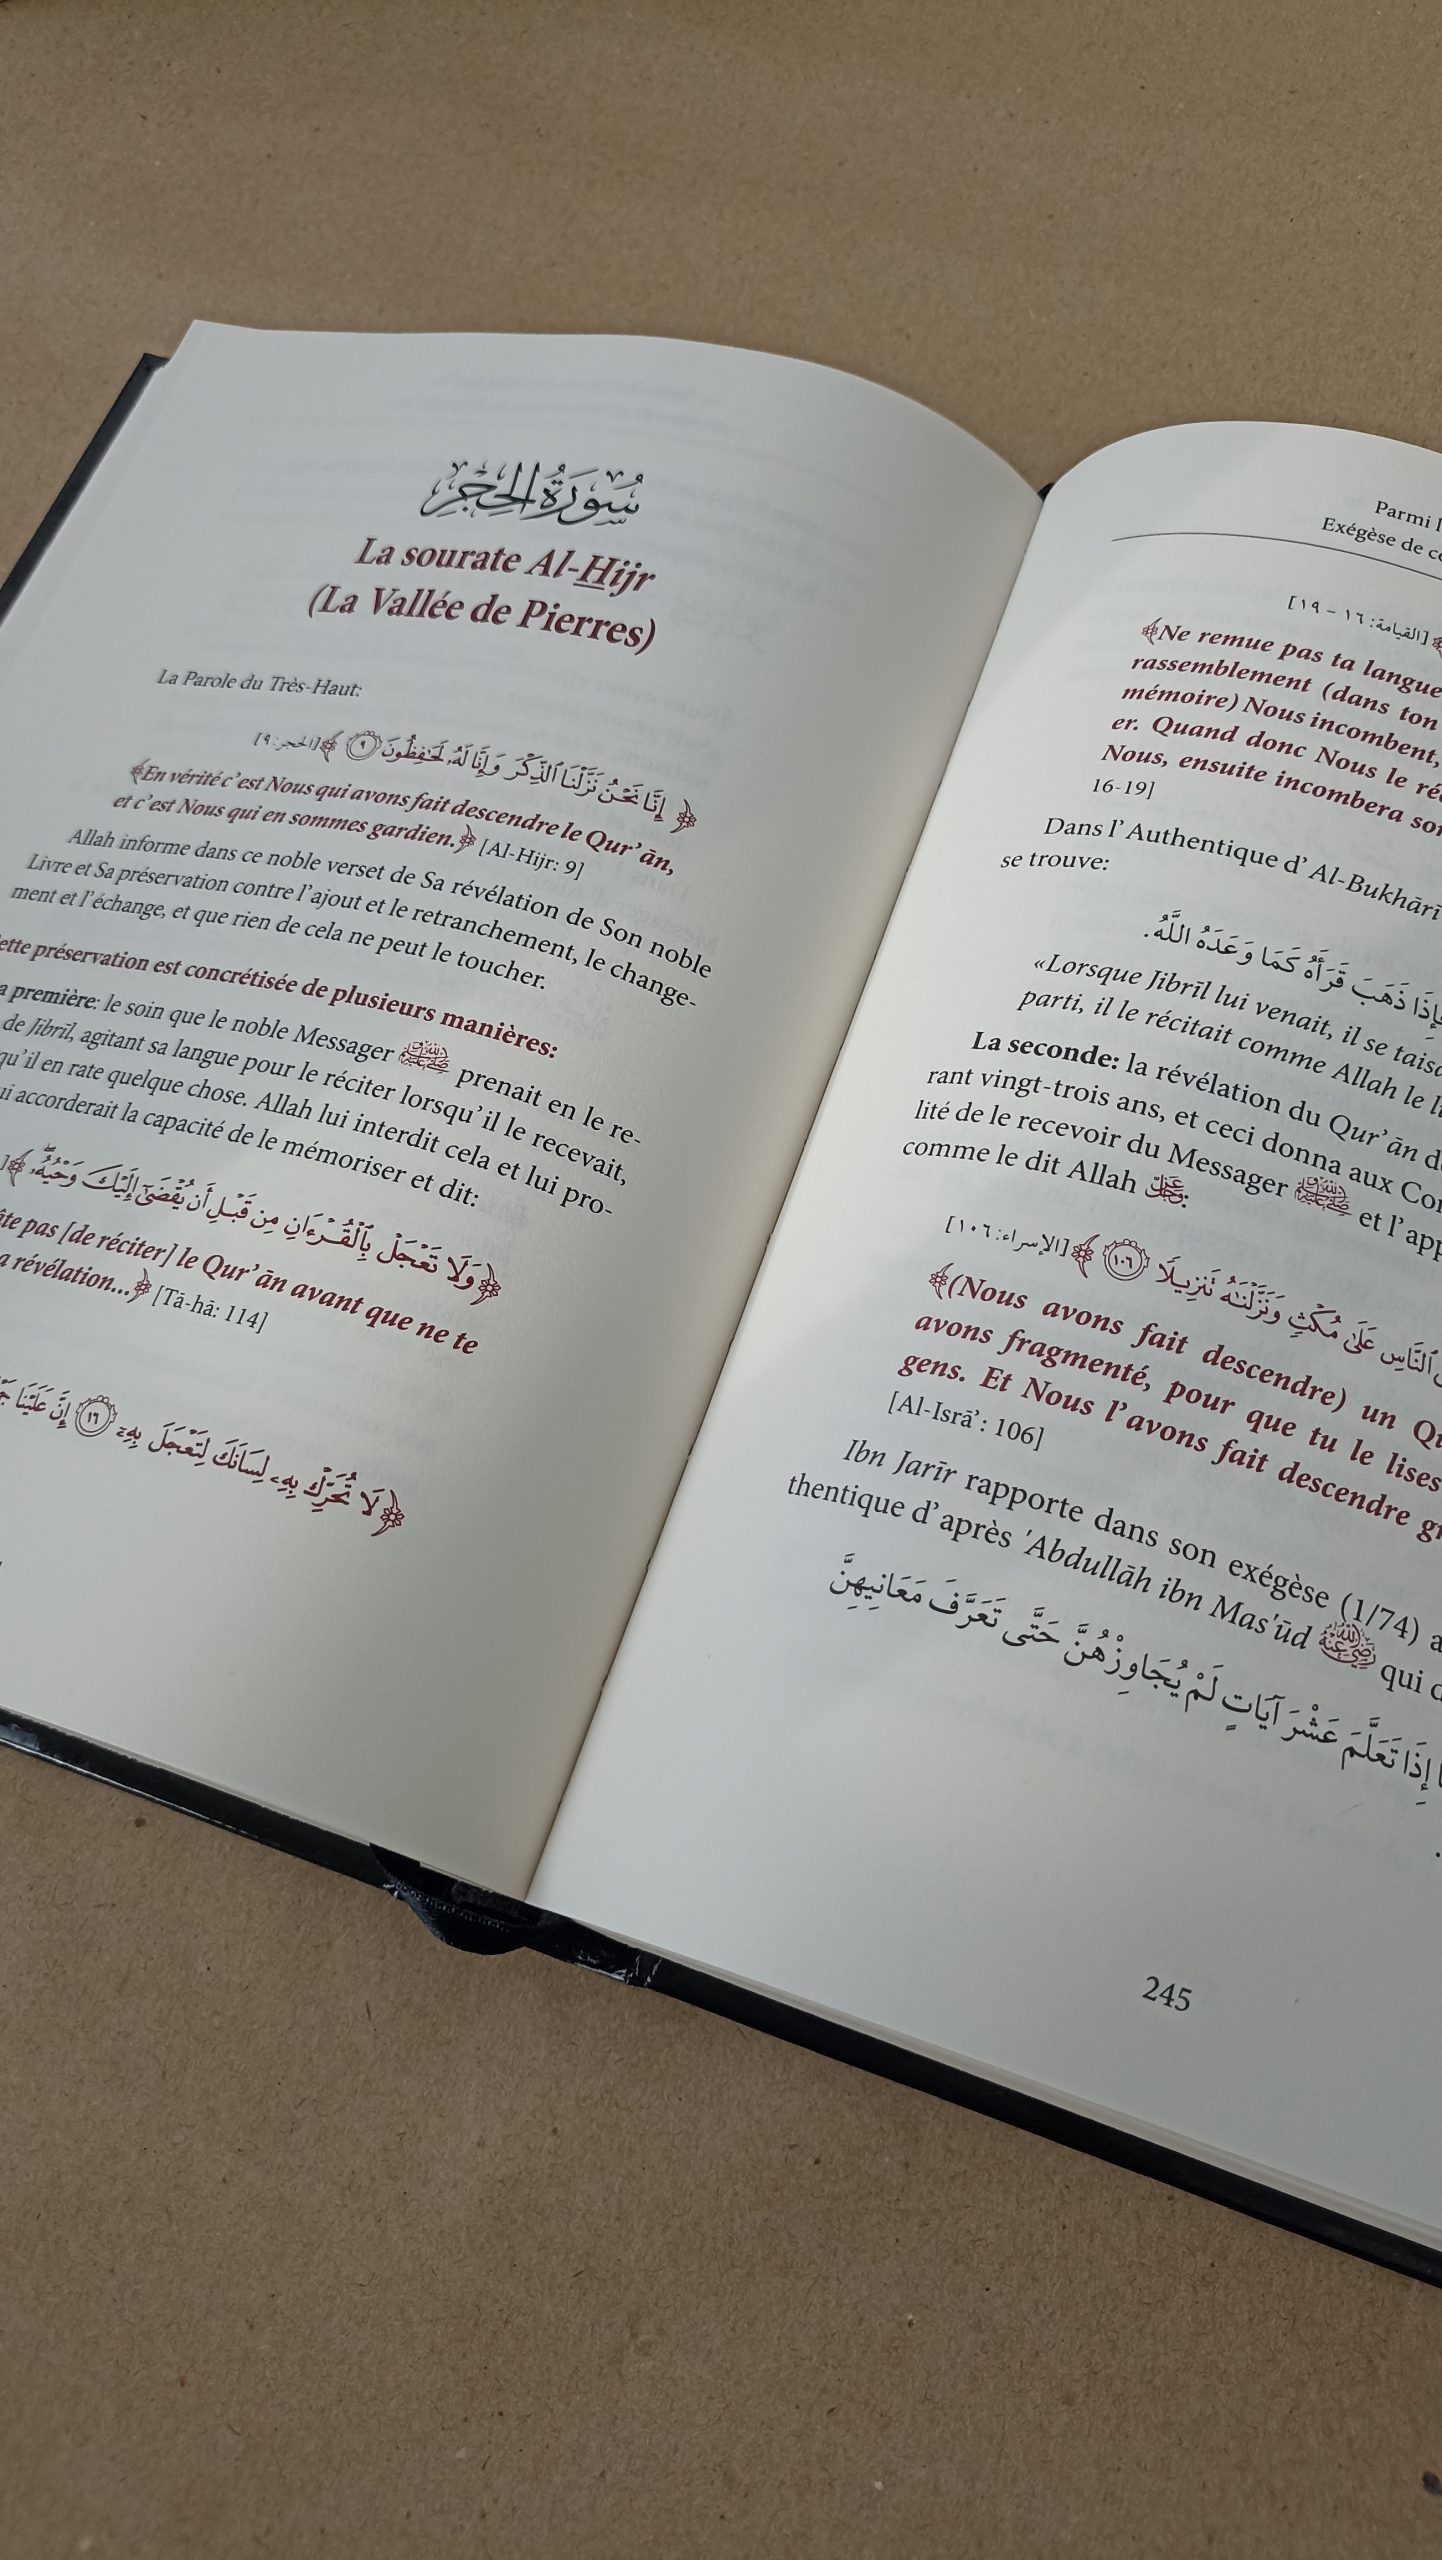 سُورَةُ الحِجْرِ
La sourate Al-Hijr
(La Vallée de Pierres)
La Parole du Très-Haut:
﴿ إِنَّا نَحْنُ نَزَّلْنَا ٱلذِّكْرَ وَإِنَّا لَهُۥ لَحَٰفِظُونَ ٩ ﴾ [الحجر: ٩]
﴾En vérité c’est Nous qui avons fait descendre le Qur’ān,
et c’est Nous qui en sommes gardien.﴿ [Al-Hijr: 9]
Allah informe dans ce noble verset de Sa révélation de Son noble
Livre et Sa préservation contre l’ajout et le retranchement, le change-
ment et l’échange, et que rien de cela ne peut le toucher.
préservation est concrétisée de plusieurs manières:
première: le soin que le noble Messager ﷺ prenait en le re-
de Jibrīl, agitant sa langue pour le réciter lorsqu’il le recevait,
qu’il en rate quelque chose. Allah lui interdit cela et lui pro-
accorderait la capacité de le mémoriser et dit:
﴿وَلَا تَعْجَلْ بِٱلْقُرْءَانِ مِن قَبْلِ أَن يُقْضَىٰٓ إِلَيْكَ وَحْيُهُۥ ﴾ [
pas [de réciter] le Qur’ān avant que ne te
révélation...﴿ [Tā-hā: 114]
﴿لَا تُحَرِّكْ بِهِۦ لِسَانَكَ لِتَعْجَلَ بِهِۦٓ ١٦ إِنَّ عَلَيْنَا
Parmi
Exégèse de
﴾ [القيامة: ١٦ - ١٩]
﴾Ne remue pas ta langue
rassemblement (dans ton
mémoire) Nous incombent,
er. Quand donc Nous le
Nous, ensuite incombera
16-19]
Dans l’Authentique d’Al-Bukhārī
se trouve:
فَإِذَا ذَهَبَ قَرَأَهُ كَمَا وَعَدَهُ اللَّهُ.
«Lorsque Jibrīl lui venait, il se
parti, il le récitait comme Allah le
La seconde: la révélation du Qur’ān
rant vingt-trois ans, et ceci donna aux
lité de le recevoir du Messager ﷺ et
comme le dit Allah عز وجل:
ٱلنَّاسِ عَلَىٰ مُكْثٍ وَنَزَّلْنَٰهُ تَنزِيلًا ١٠٦ ﴾ [الإسراء: ١٠٦]
﴾(Nous avons fait descendre) un
avons fragmenté, pour que tu le lises
gens. Et Nous l’avons fait descendre
[Al-Isrā’: 106]
Ibn Jarīr rapporte dans son exégèse (1/74)
thentique d’après 'Abdullāh ibn Mas'ūd رضي الله عنه qui
إِذَا تَعَلَّمَ عَشْرَ آيَاتٍ لَمْ يُجَاوِزْهُنَّ حَتَّى تَعَرَّفَ مَعَانِيهِنَّ
.
245